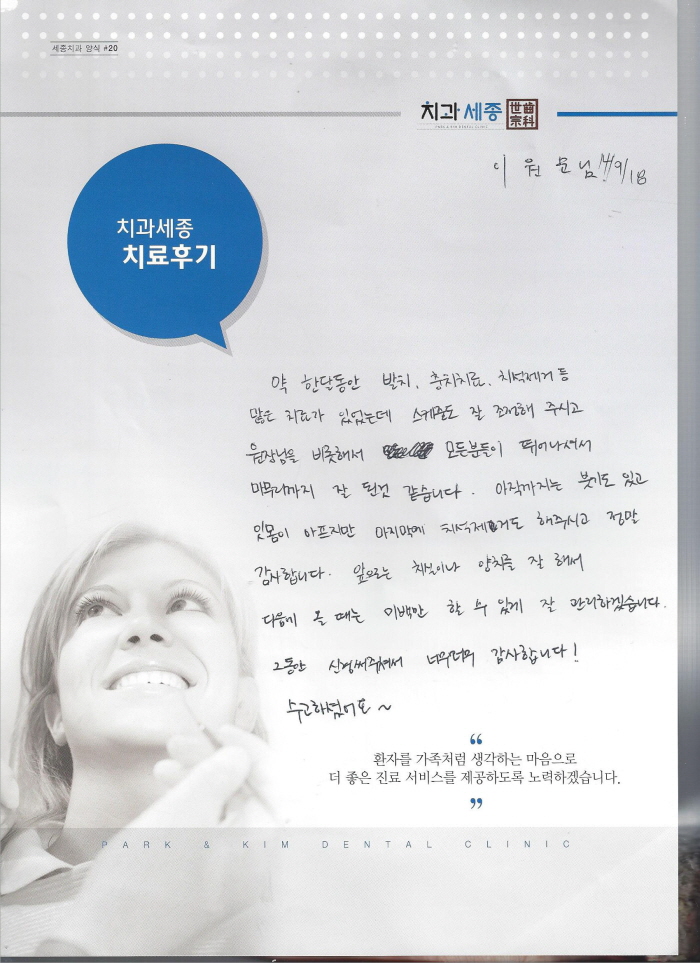 세종치과 양식 #20
치과세종 世宗齒科
PARK & KIM DENTAL CLINIC
이 원 문님 14/9/18
치과세종
치료후기
약 한달동안 발치, 충치치료, 치석제거 등
많은 치료가 있었는데 스케줄도 잘 조정해 주시고
원장님을 비롯해서 모든분들이 뛰어나셔서
마무리까지 잘 된것 같습니다. 아직까지는 붓기도 있고
잇몸이 아프지만 마지막에 치석제거도 해주시고 정말
감사합니다. 앞으로는 치실이나 양치를 잘 해서
다음에 올 때는 미백만 할 수 있게 잘 관리하겠습니다.
그동안 신경써주셔서 너무너무 감사합니다!
수고하셨어요~
“
환자를 가족처럼 생각하는 마음으로
더 좋은 진료 서비스를 제공하도록 노력하겠습니다.
”
PARK & KIM DENTAL CLINIC